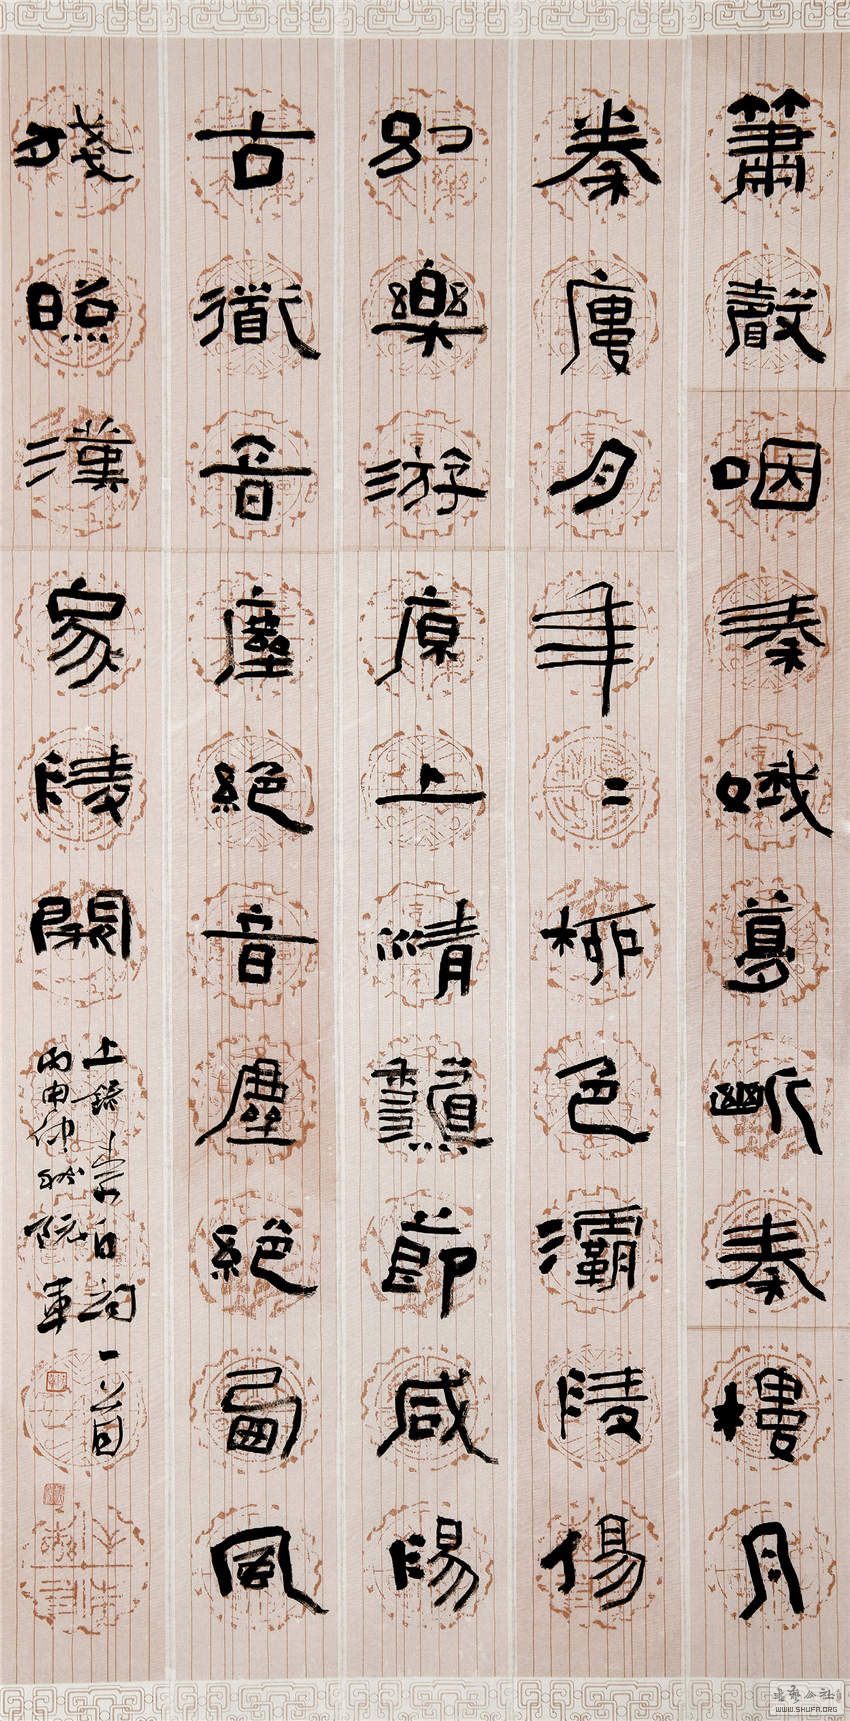 簫聲咽秦娥夢斷秦樓月
秦廔月年〻柳色灞陵傷
別樂游原上清龝節咸陽
古衜音塵絕音塵絕西風
殘照漢家陵闕
上錄李白詞一首
丙申仲秋阮軍
WWW.SHUFA.ORG